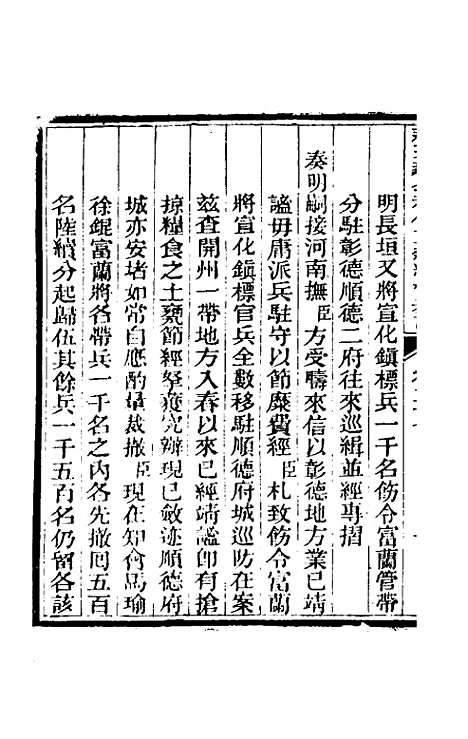 明長垣又將宣化鎮標兵一千名飭令富蘭管帶
分駐彰德順德二府往來巡緝並經專摺
奏明嗣接河南撫臣方受疇來信以彰德地方業已靖
謐毋庸派兵駐守以節糜費經臣札致飭令富蘭
將宣化鎮標官兵全數移駐順德府城巡防在案
茲查開州一帶地方入春以來已經靖謐卽有搶
掠糧食之土棍節經拏獲究辦現已斂迹順德府
城亦安堵如常自應酌量裁撤臣現在知會馬瑜
徐錕富蘭將各帶兵一千名之內各先撤回五百
名陸續分起歸伍其餘兵一千五百名仍留各該